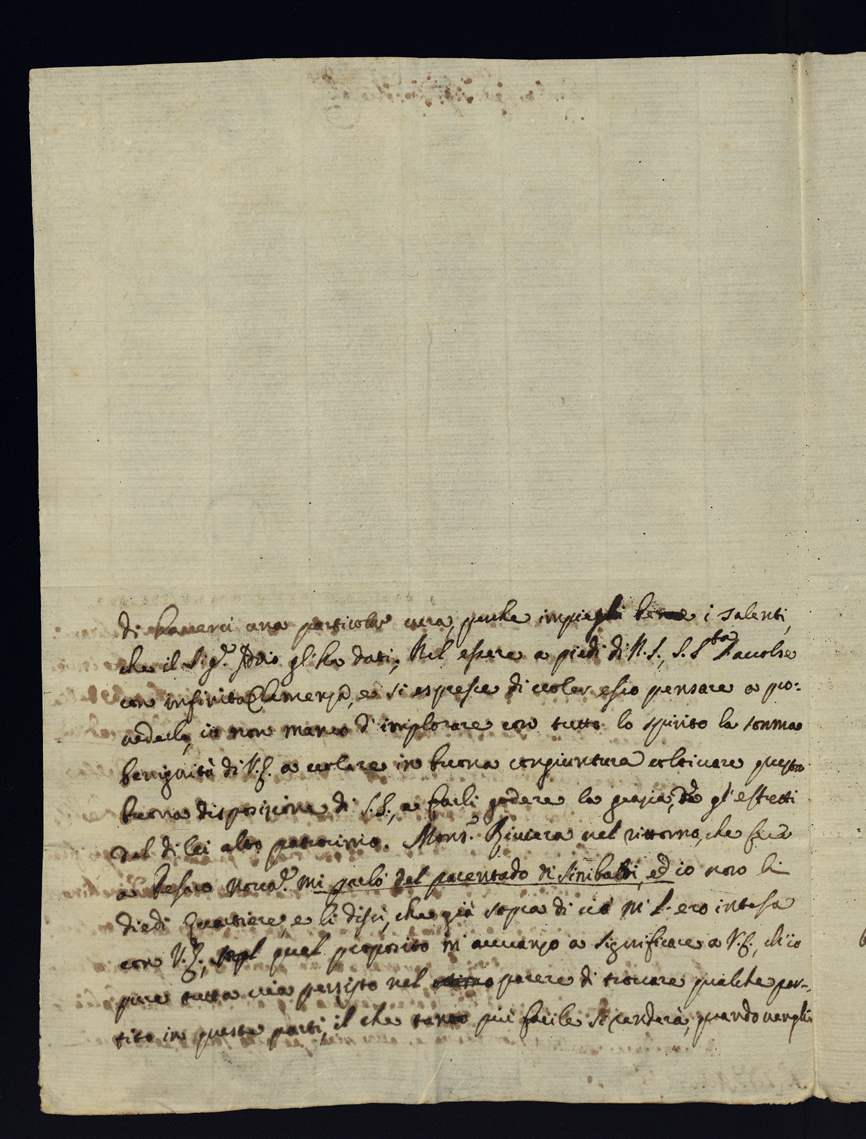 di havervi una particolar cura, perche impieghi bene i talenti,
che il Sig.r Iddio gl'ha dati; Nel essere a piedi di N.S., S.S.tà l'accolse
con infinita Clemenza, e si espresse di voler esso pensare a pro=
vederla, io non manco d'implorare con tutto lo spirito la somma
benignità di V.E. a volere in buona congiuntura coltivare questa
buona disposizione di S.S., a farli godere la grazia, gl'effetti
dal di lei alto patrocinio. Mons.r Riviera nel ritorno, che fece
a Pesaro mi parlò del parentado di Sinibaldi, ed io non li
diedi Quartiere, e li dissi, che già sopra di ciò m'ero intesa
con V.E., qual proposito m'avvanzo a significare a V.E., ch'io
pure tutta via persisto nel parere di trovare qualche par=
tito in queste parti, il che tanto più facile si renderà, quando venghi